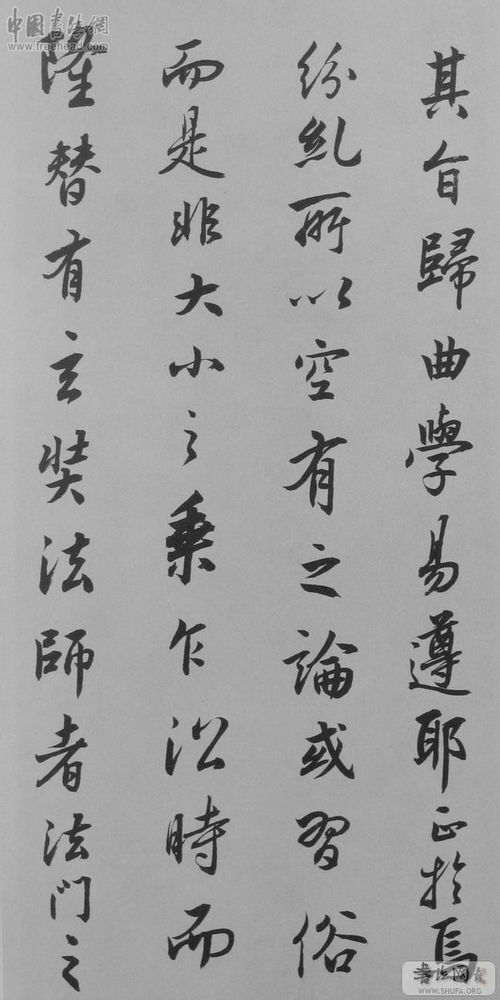 其旨歸曲學易遵耶正於焉
紛乱所以空有之論或習俗
而是非大小之乗乍沿時而
隆替有玄奘法師者法門之
中国书法網
www.freehead.com
书法网
WWW.SHUFA.ORG